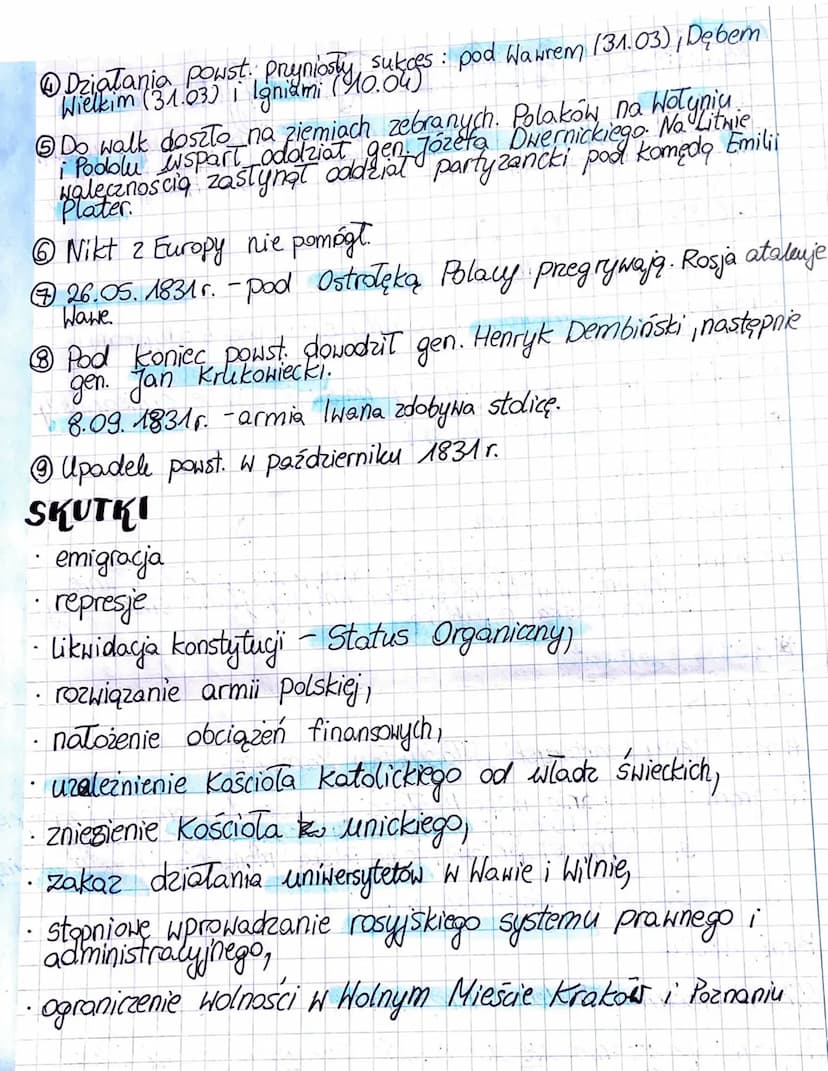 ④ Działania powst. przyniosły sukces : pod Wawrem (31.03), Dębem
Wielkim (31.03) i Igniami (10.04)
⑤ Do walk doszło na ziemiach zebranych. Polaków na Wołyniu
i Podolu wsparł oddział gen. Józefa Dwernickiego. Na Litwie
walecznością zasłynął oddział partyzancki pod komędą Emilii
Plater.
⑥ Nikt z Europy nie pomógł.
⑦ 26.05.1831r. - pod Ostrołęką Polacy przegrywają. Rosja atakuje
Wawe.
⑧ Pod koniec powst. dowodził gen. Henryk Dembiński, następnie
gen. Jan Krukowiecki.
8.09.1831r. - armia Iwana zdobywa stolicę.
⑨ Upadek powst. w październiku 1831r.
SKUTKI
· emigracja
· represje
· likwidacja konstytucji - Status Organiczny,
· rozwiązanie armii polskiej,
· nałożenie obciążeń finansowych,
· uzależnienie Kościoła katolickiego od władz świeckich,
· zniesienie Kościoła unickiego,
· zakaz działania uniwersytetów w Wawie i Wilnie,
· stopniowe wprowadzanie rosyjskiego systemu prawnego i
administracyjnego,
· ograniczenie wolności w Wolnym Mieście Kraków i Poznaniu